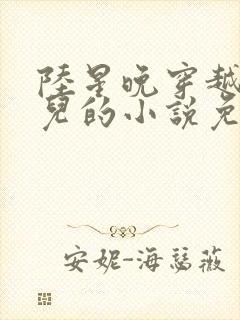 陸星晚穿越
兒的小說免
安妮-海瑟薇